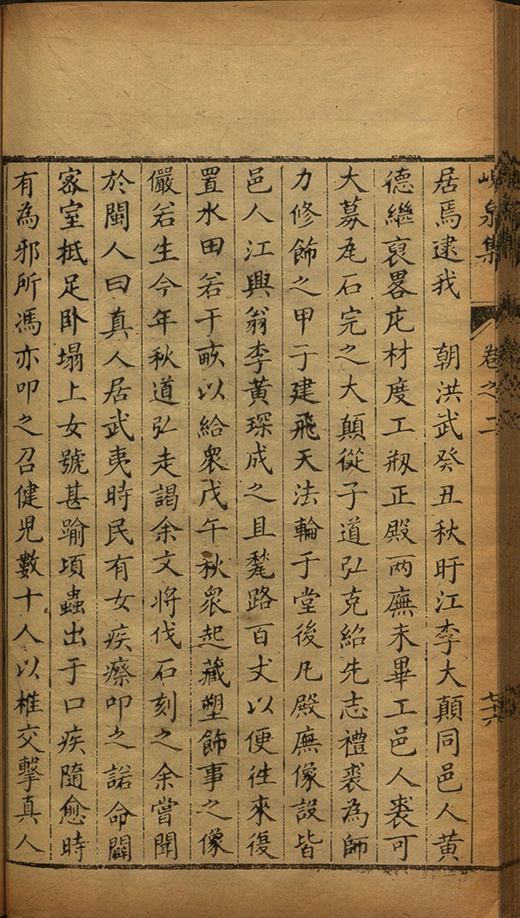 峴泉集 卷之二 七六
居焉逮我 朝洪武癸丑秋盱江李大顛同邑人黃
德繼裒畧庀材度工刱正殿兩廡未畢工邑人裘可
大募瓦石完之大顛從子道弘克紹先志禮裘為師
力修飾之甲子建飛天法輪于堂後凡殿廡像設皆
邑人江興翁李黃琛成之且甃路百丈以便徃來復
置水田若干畝以給衆戊午秋衆起藏塑飾事之像
儼若生今年秋道弘走謁余文將伐石刻之余嘗聞
於閩人曰真人居武夷時民有女疾瘵叩之諾命闢
宻室抵足卧塌上女號甚踰頃蟲出于口疾隨愈時
有為邪所馮亦叩之召健児數十人以椎交擊真人